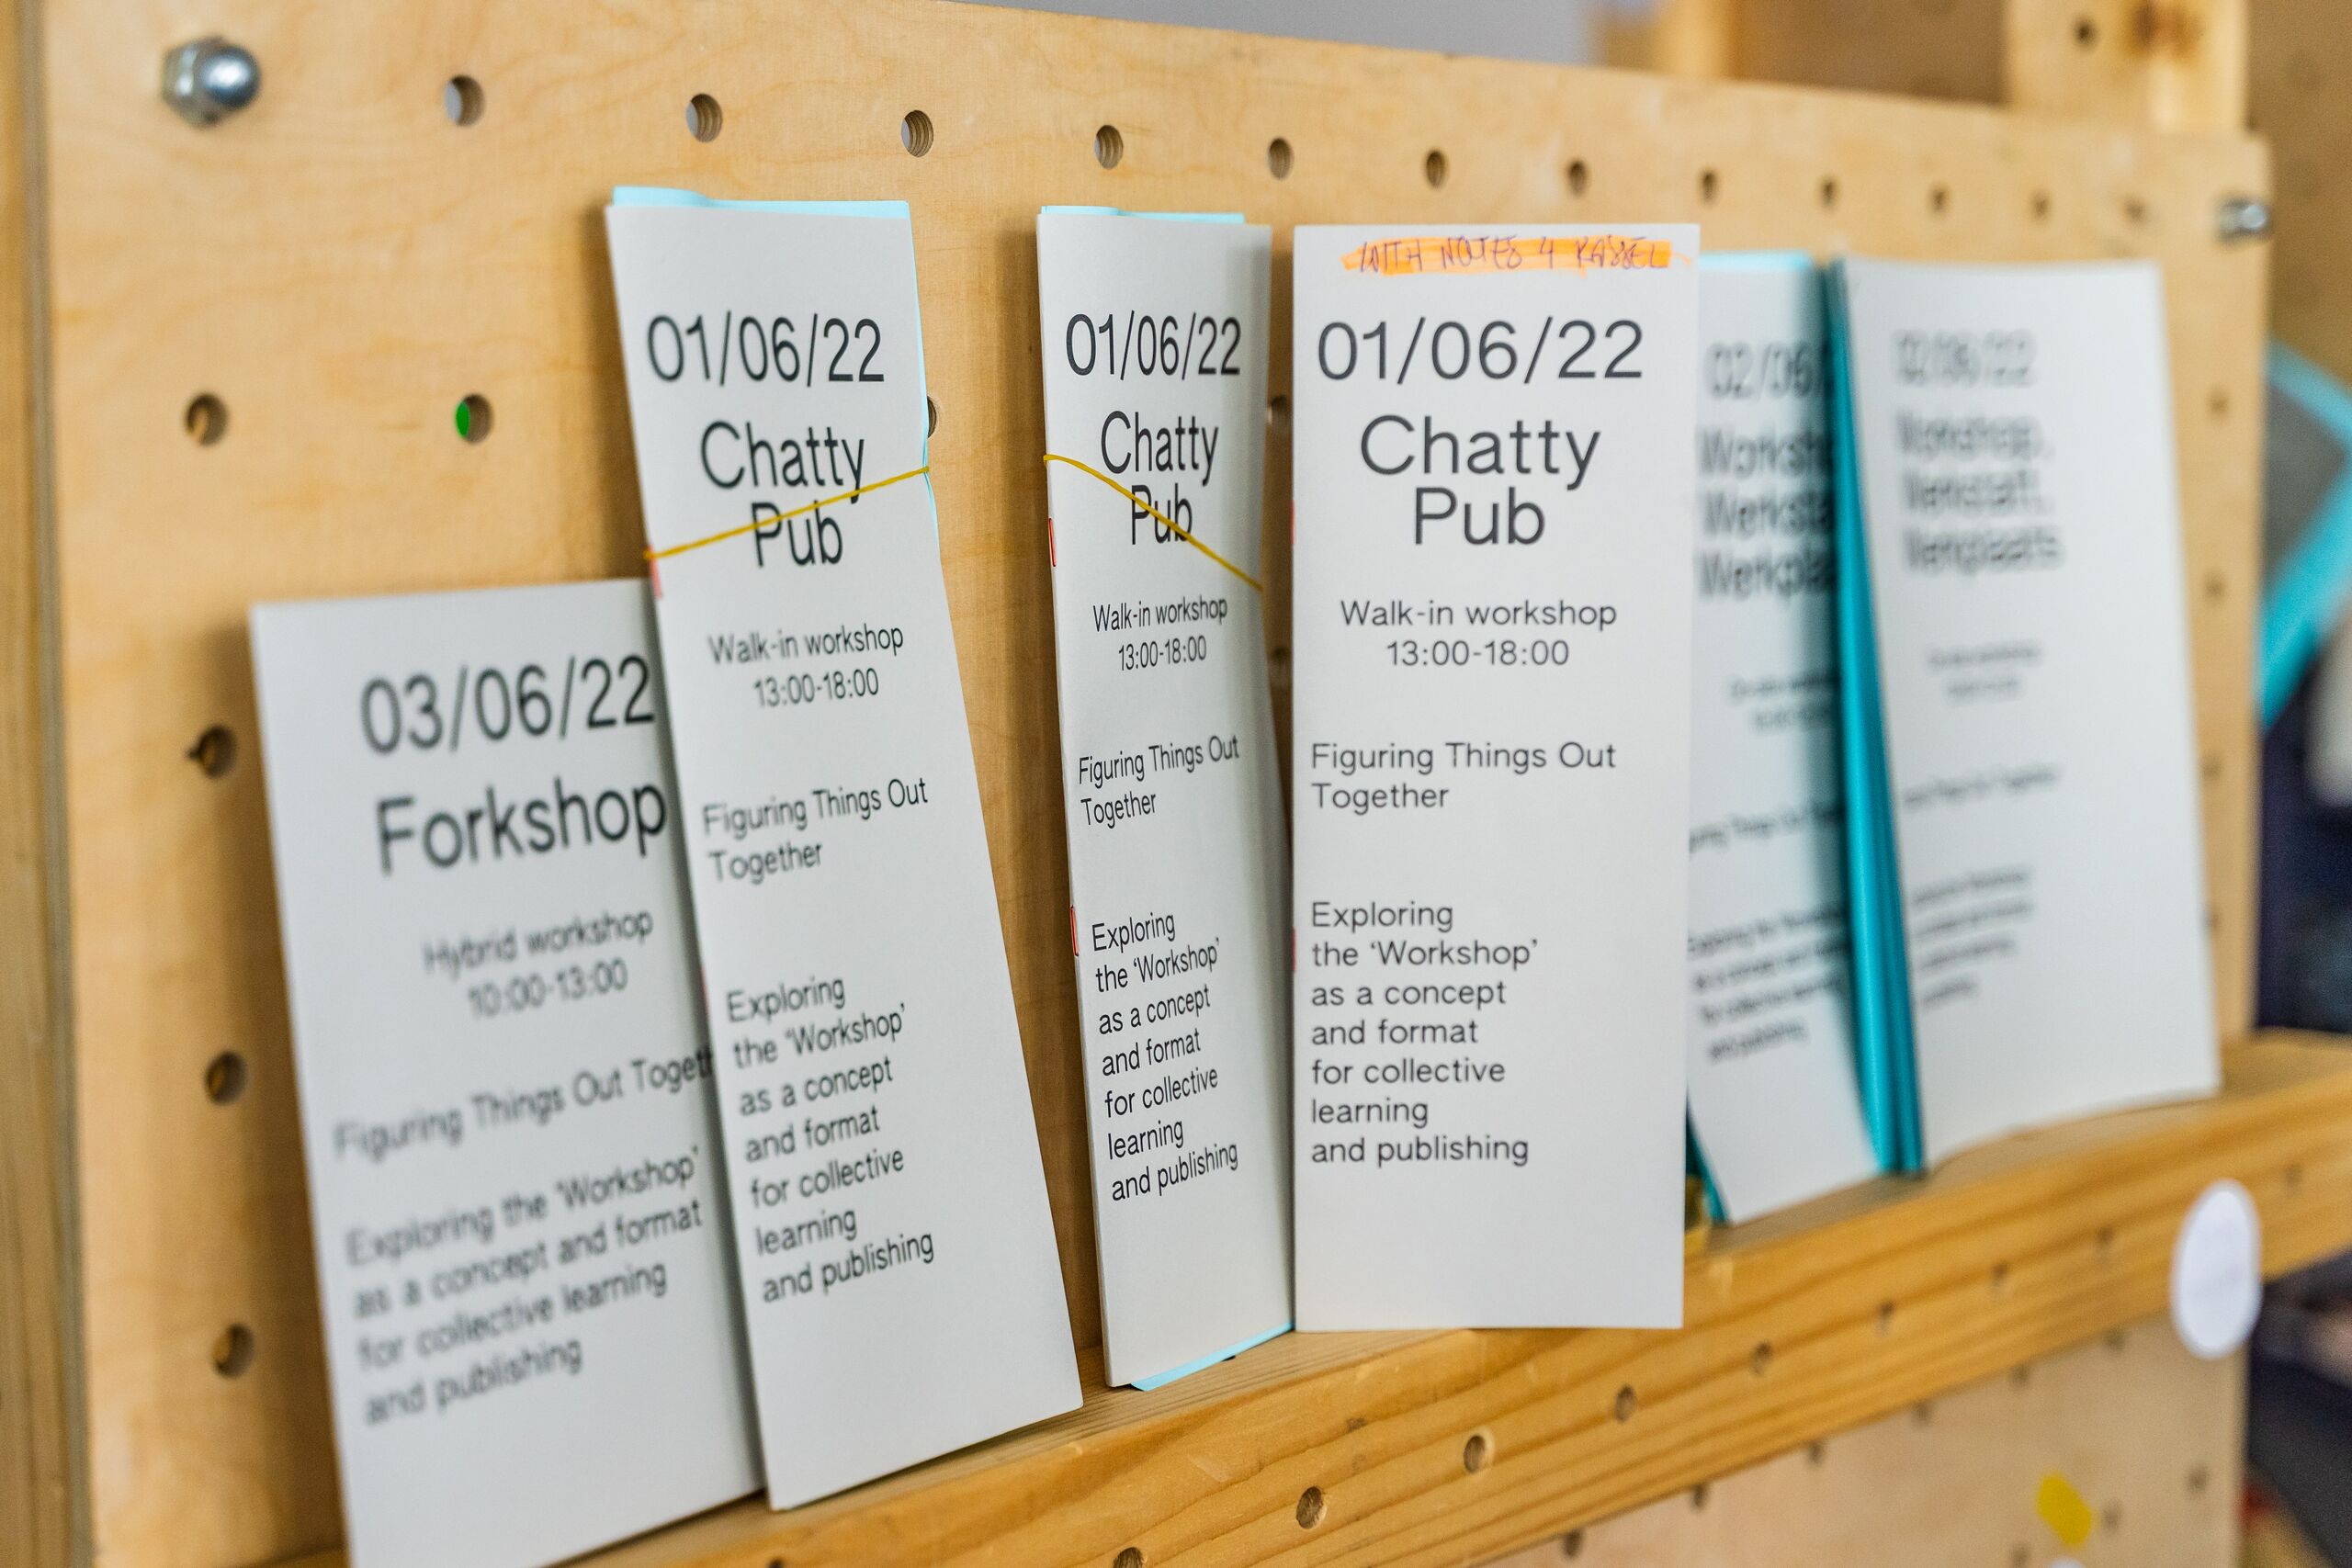 03/06/22
Forkshop
Hybrid workshop
10:00-13:00
Figuring Things Out Togeth
Exploring the ‘Workshop’
as a concept and format
for collective learning
and publishing
01/06/22
Chatty
Pub
Walk-in workshop
13:00-18:00
Figuring Things Out
Together
Exploring
the ‘Workshop’
as a concept
and format
for collective
learning
and publishing
01/06/22
Chatty
Pub
Walk-in workshop
13:00-18:00
Figuring Things Out
Together
Exploring
the ‘Workshop’
as a concept
and format
for collective
learning
and publishing
WITH NOTES 4 KASSEL
01/06/22
Chatty
Pub
Walk-in workshop
13:00-18:00
Figuring Things Out
Together
Exploring
the ‘Workshop’
as a concept
and format
for collective
learning
and publishing
02/06
Worksh
Werksta
Werkpla
and publishing
02/06/22
Workshop,
Werkplaats